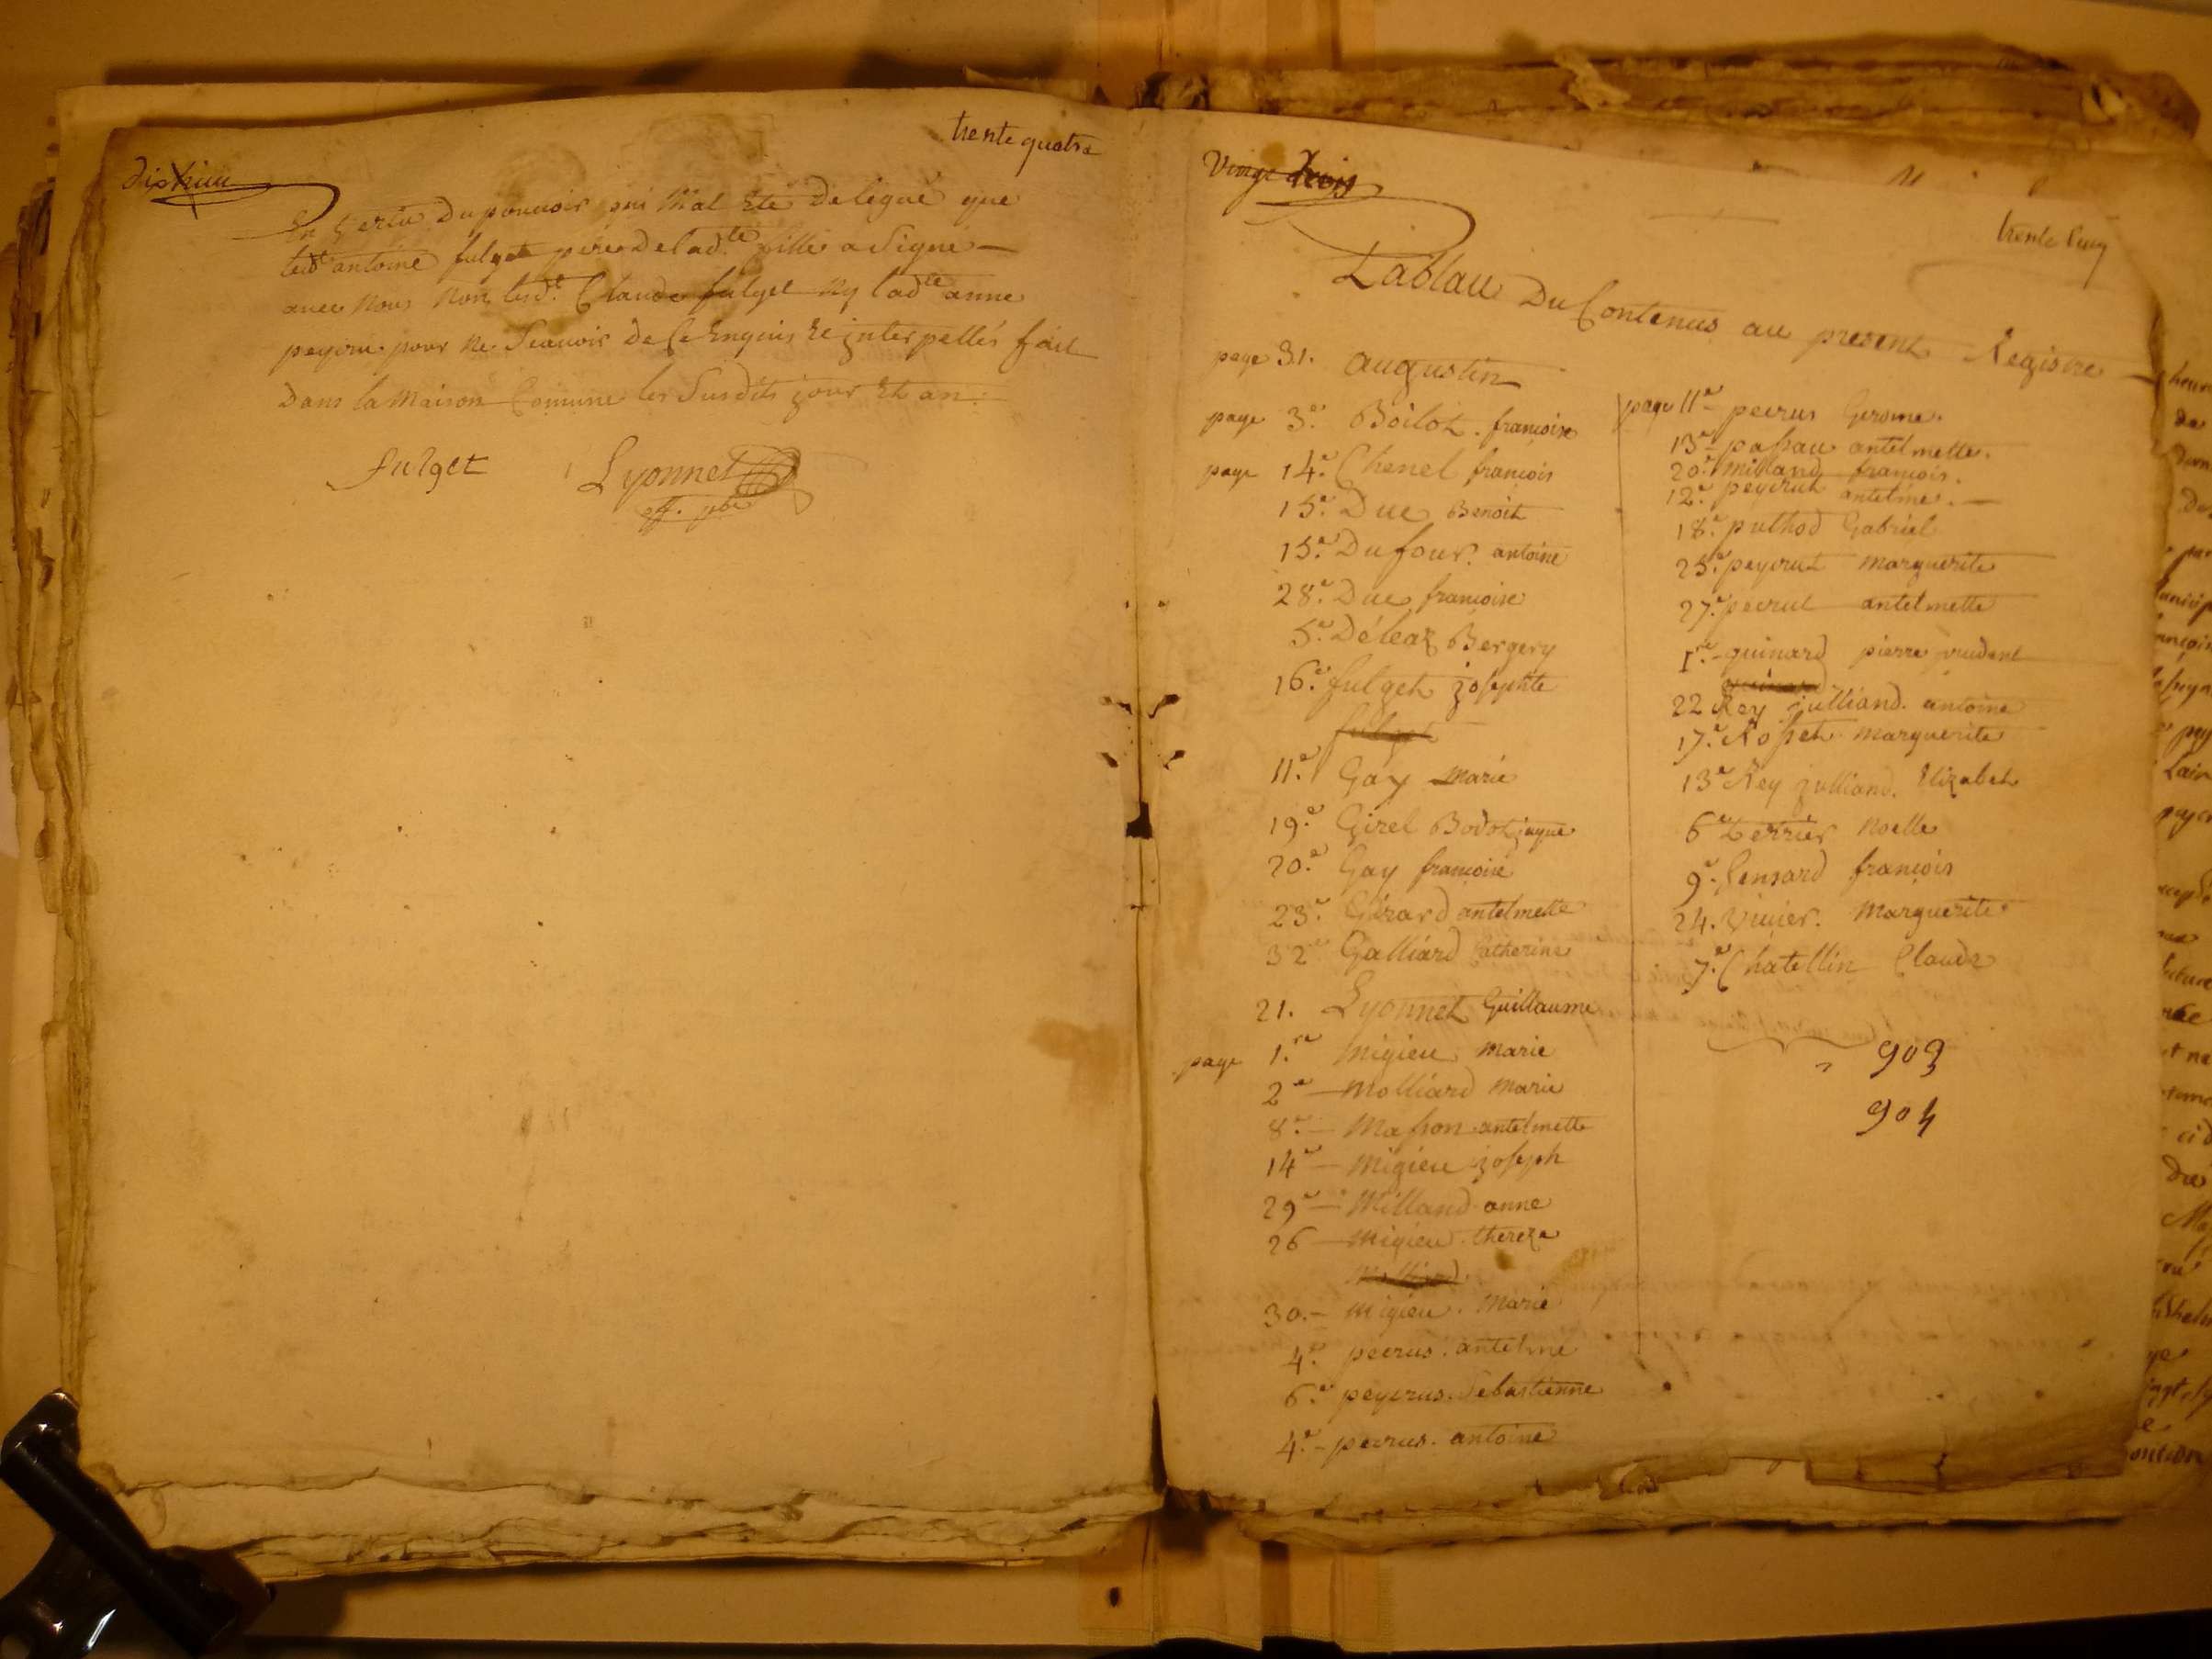 trente quatre
En Vertu Du pouvoir qui Mat Eté Delegué que
ledt antoine fulget pere De ladte fille a Signé
avec Nous Non lesdt Claude fulget Ny ladte anne
pour Ne Scavoir De Ce Enquis Et interpellés fait
Dans la Maison Comune les Susdits jour Et an.
fulget Lyonnet
Vingt trois
trente Cinq
Tablau Du Contenus au present Registre
page 31. augustin
page 3.e Boilot. francoise
page 14.e Chenel francois
15.e Duc Benoit
15.e Dufour. antoine
28.e Duc francoise
5.e Déleaz Bergery
16.e fulget josephte
fulget
11.e Gay Marie
19.e Girel Bodot jaque
20.e Gay francoise
23.e Gérard antelmette
32 Galliard Catherine
21. Lyonnet Guillaume
page 1.re Migieu Marie
2.e Molliard Marie
8.e Masson antelmette
14.e Migieu joseph
29.e Milland anne
26 Migieu thereze
30. Migieu. Marie
4.e peirus. antelme
6.e peyrus. Sebastienne
4.e peirus. antoine
page 11.e peirus Gerome.
13.e passau antelmette.
20.e Milland francois.
12.e peyrut antelme.
18.e puthod Gabriel
25.e peyrut Marguerite
27.e peirut antelmette
1.re guinard pierre prudent
guinard
22 Rey julliand. antoine
17.e Rosset Marguerite
13.e Rey julliand. Elizabet
6.e terrier Noelle
9.e Sensard francois
24. Vivier. Marguerite
7.e Chatellin Claude
903
904